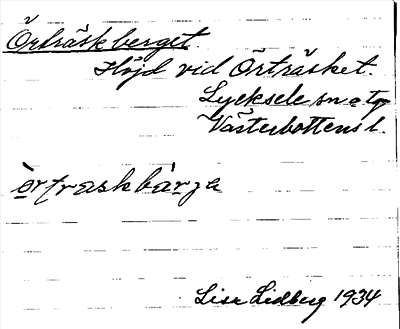 Örträskberget.
Höjd vid Örträsket.
Lycksele sn o tg
Västerbottens l.
ò̱rtraskbàrja
Lisa Lidberg 1934